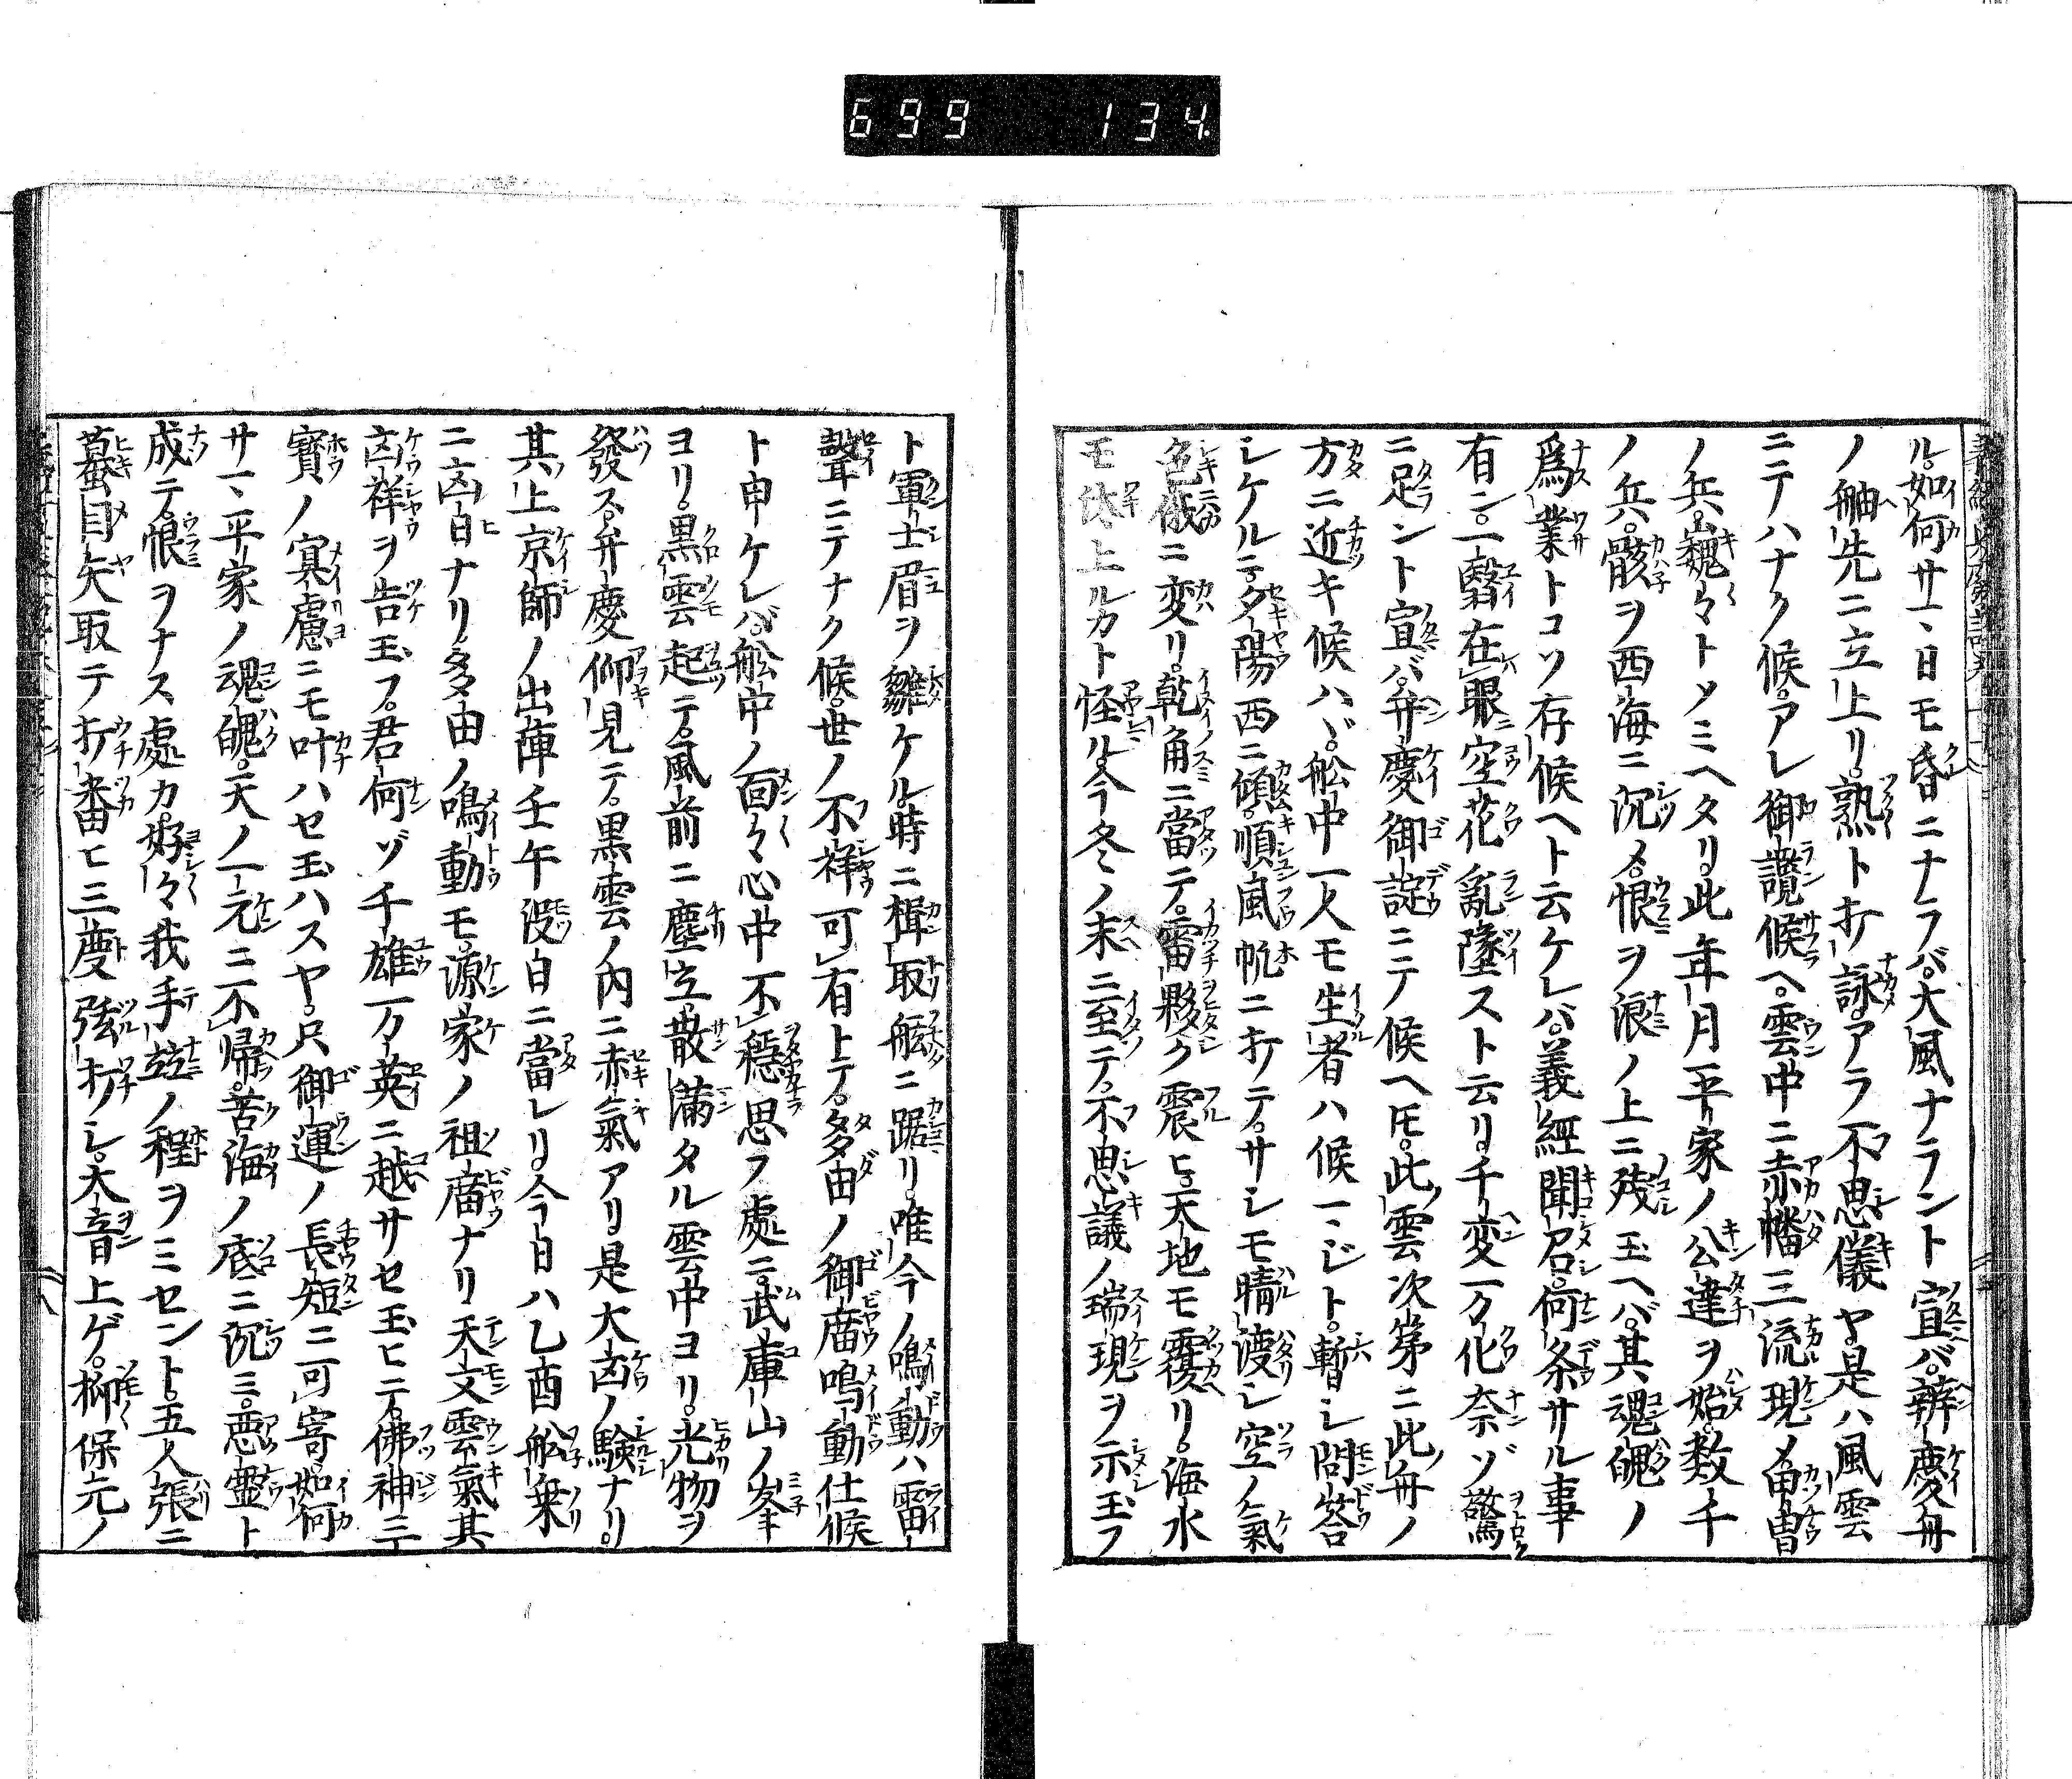 699 134
ル。如何サマ、日モ昏ニナラバ。大風ナラント宣バ。辨慶舟
ノ舳先ニ立上リ。熟ト打詠。アラ不思儀ヤ。是ハ風雲
ニテハナク候。アレ御讃候ヘ。雲中ニ赤幡三流現メ甲冑
ノ兵。巍々トメミヘタリ。此年月平家ノ公達ヲ始。数千
ノ兵。骸ヲ西海ニ沉メ。恨ヲ浪ノ上ニ残玉ヘバ。其魂魄ノ
爲業トコソ存候ヘト云ケレバ。義經聞召。何条サル事
有ン。一翳在眼空花亂墜スト云リ。千変万化奈ゾ驚
ニ足ント宣バ。弁慶御諚ニテ候ヘ𪜈。此雲次第ニ此舟ノ
方ニ近キ候ハヾ。舩中一人モ生者ハ候マジト。暫シ問答
シケルニ。夕陽西ニ傾。順風帆ニ打テ。サシモ晴渡シ空ノ氣
色俄ニ変リ。乾角ニ當テ。雷夥ク震ヒ。天地モ覆リ。海水
モ上ルカト怪ル。今冬ノ末ニ至テ。不思議ノ瑞現ヲ示玉フ
ト軍士眉ヲ皺ケル。時ニ楫取舩ニ踞リ。唯今ノ鳴動ハ雷
聲ニテナク候。世ノ不祥可有トテ。多田ノ御庿鳴動仕候
ト申ケレバ。舩中ノ面々心中不穏思フ處ニ。武庫山ノ峯
ヨリ。黒雲起テ。風前ニ塵立。散滿タル雲中ヨリ。光物ヲ
發ス。弁慶仰見テ。黒雲ノ内ニ赤氣アリ。是大凶ノ験ナリ。
其上京師ノ出陣壬午没日ニ當レリ。今日ハ乙酉舩乗
ニ凶日ナリ。多田ノ鳴動モ。源家ノ祖庿ナリ。天文雲氣其
凶祥ヲ告玉フ。君何ゾ千雄万英ニ越サセ玉ヒテ。佛神三
寳ノ冥慮ニモ叶ハセ玉ハスヤ。只御運ノ長短ニ可寄。如何
サマ、平家ノ魂魄。天ノ一元ニ不帰。苦海ノ底ニ沉ミ。悪霊ト
成テ。恨ヲナス處カ。好々我手並ノ程ヲミセント。五人張ニ
蟇目矢取テ打番ヒ三度弦打シ。大音上ゲ。抑保元ノ